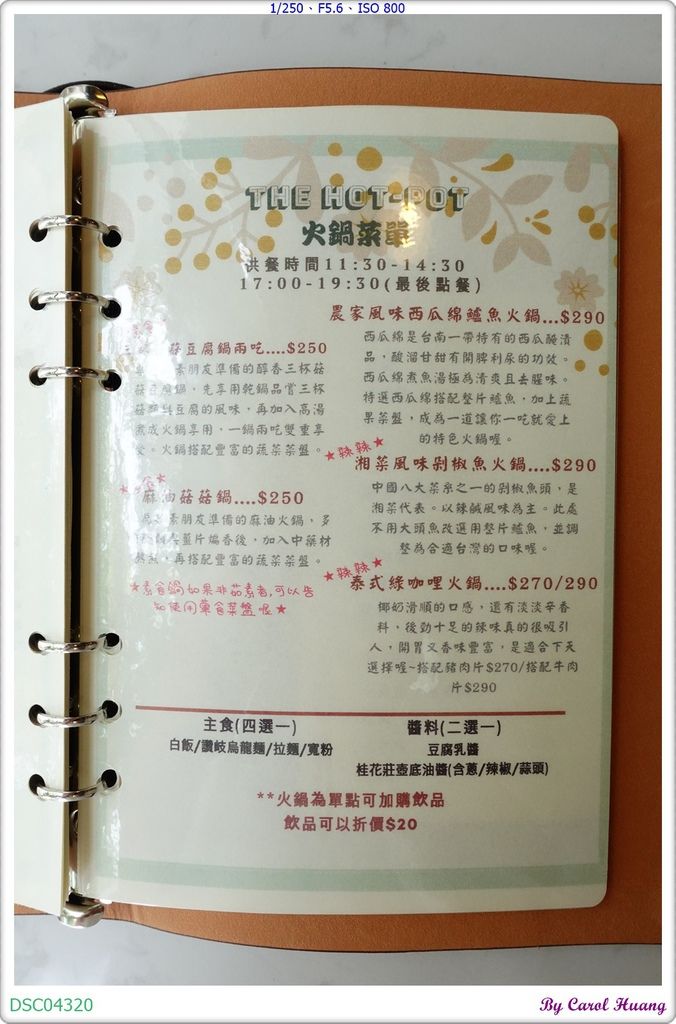 1/250、F5.6、ISO 800
THE HOT-POT
火鍋菜單
供餐時間11:30-14:30
17:00-19:30(最後點餐)
菇豆腐鍋兩吃....$250
素朋友準備的醇香三杯菇
菇豆腐鍋，先享用乾鍋品嘗三杯
菇類與豆腐的風味，再加入高湯
煮成火鍋享用，一鍋兩吃雙重享
受。火鍋搭配豐富的蔬菜菜盤。
麻油菇菇鍋....$250
素朋友準備的麻油火鍋，多
與薑片煸香後，加入中藥材
，再搭配豐富的蔬菜菜盤。
★素食鍋如果非茹素者,可以告
知使用葷食菜盤喔★
農家風味西瓜綿鱸魚火鍋...$290
西瓜綿是台南一帶特有的西瓜醃漬
品，酸溜甘甜有開脾利尿的功效。
西瓜綿煮魚湯極為清爽且去腥味。
特選西瓜綿搭配整片鱸魚，加上蔬
果菜盤，成為一道讓你一吃就愛上
的特色火鍋喔。
★辣辣★
湘菜風味剁椒魚火鍋....$290
中國八大菜系之一的剁椒魚頭，是
湘菜代表。以辣鹹風味為主。此處
不用大頭魚改選用整片鱸魚，並調
整為合適台灣的口味喔。
★辣辣★
泰式綠咖哩火鍋...$270/290
椰奶滑順的口感，還有淡淡辛香
料，後勁十足的辣味真的很吸引
人，開胃又香味豐富，是適合下天
選擇喔~搭配豬肉片$270/搭配牛肉
片$290
主食(四選一)
白飯/讚岐烏龍麵/拉麵/寬粉
醬料(二選一)
豆腐乳醬
桂花莊壺底油醬(含蔥/辣椒/蒜頭)
**火鍋為單點可加購飲品
飲品可以折價$20
DSC04320
By Carol Huang